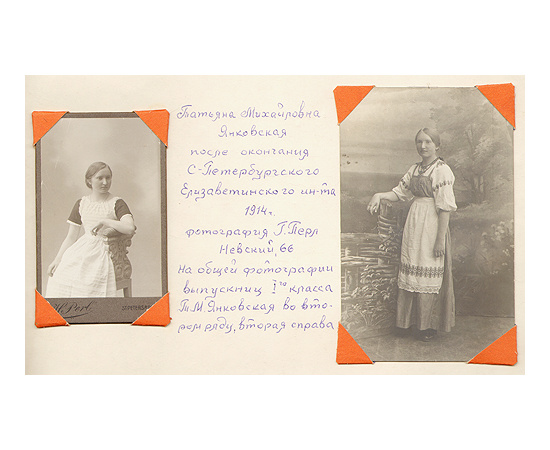 Татьяна Михайловна
Янковская
после окончания
С-Петербургского
Елизаветинского ин-та
1914 г.
фотография Г. Перл
Невский, 66
На общей фотографии
выпускниц I го класса
Т.М. Янковская во вто-
ром ряду, вторая справа
Perl